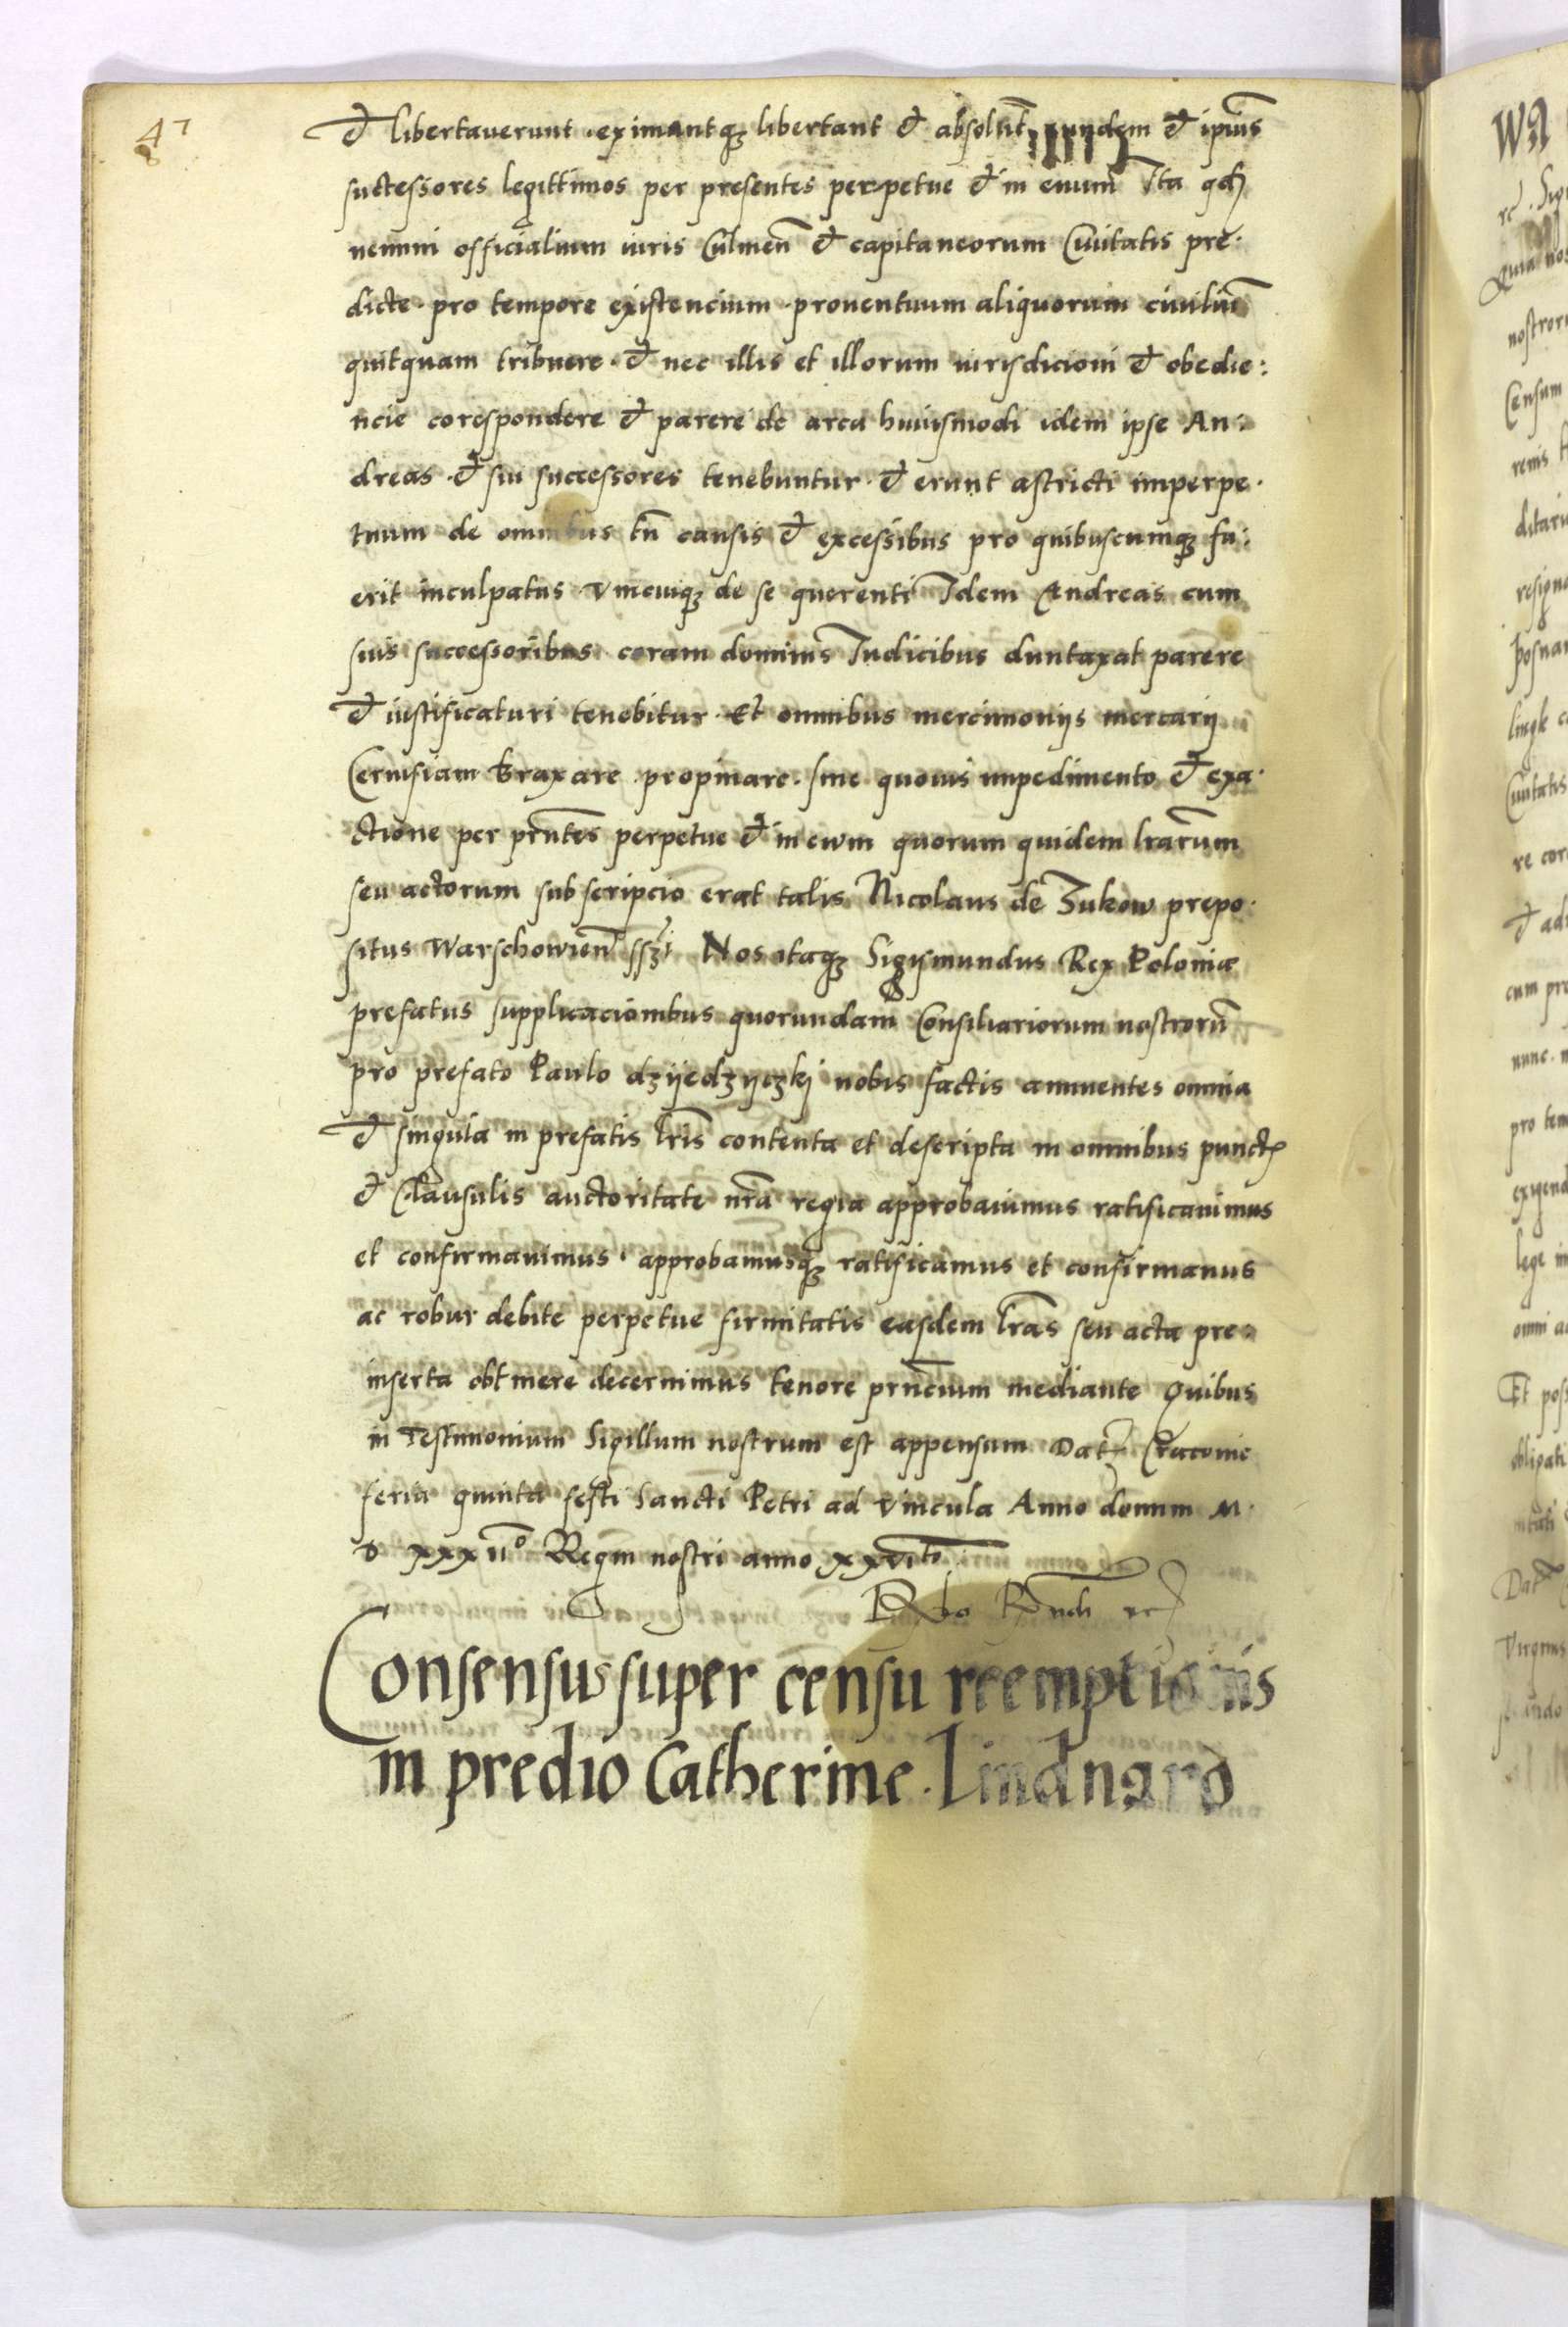 47
8
et libertaverunt. eximantqꝫ libertant et absolūt eundem et ipīus
suctessores legittimos per presentes perpetue et in euum Ita qđ
nemini officialium iuris Culmeñ et capitaneorum Ciuitatis pre.
dicte. pro tempore existencium. prouentuum aliquorum ciuiliū
quitquam tribuere. et nec illis et illorum iurisdicioni et obedie:
ncie corespondere et parere de arca huiusmodi idem ipse An:
dreas. et sui successores tenebuntur. et erunt astricti imperpe.
tuum de omnibus tñ causis et excessibus pro quibuscumqꝫ fu:
erit inculpatus vnicuiqꝫ de se querenti Idem Andreas cum
suis successoribus. coram dominis Iudicibus duntaxat parere
et iustificaturi tenebitur. Et omnibus mercimonijs mercarij
Ceruisiam braxare. propinare. sine quouis impedimento et exa.
ctione per prñtes perpetue et in ewm quorum quidem lrarum
seu actorum subscripcio erat talis Nicolaus de Zukow prepo.
situs Warschowieñ Nos itaqꝫ Sigismundus Rex Poloniæ
prefatus supplicacionibus quorundam Consiliariorum nostrorū
pro prefato Paulo dzyedzyczkj nobis factis annuentes omnia
et singula in prefatis lris contenta et descripta in omnibus punct
et Clausulis auctoritate nrã regia approbauimus ratificauimus
et confirmauimus. approbamusqꝫ ratificamus et confirmanus
ac robur debite perpetue firmitatis easdem lras seu acta pre:
inserta obtinere decernimus tenore prñcium mediante Quibus
in Testimonium Sigillum nostrum est appensum Dat Cracouie
feria quinta festi Sancti Petri ad Vincula Anno domini M.
D xxxii° Regni nostri anno xxvi to
Consensus super censu reemptionis
in predio Catherine. Lindnaro